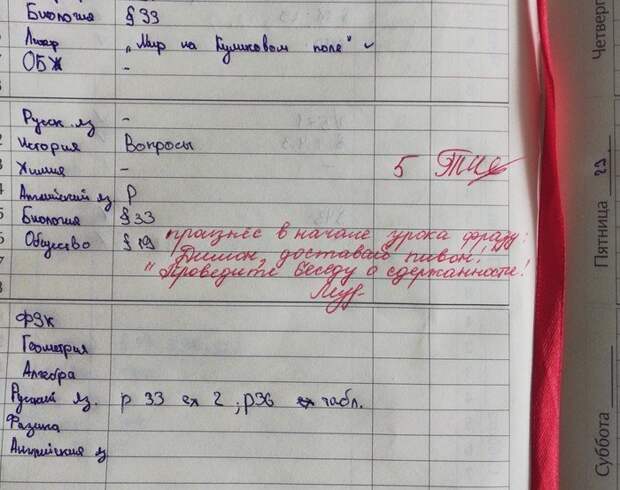 Биология § 33
Литер „Мир на Куликовом поле"
ОБЖ -
Русск. яз -
История Вопросы
Химия - 5
Английский яз Р
Биология § 33
Общество § 19
произнёс в начале урока фразу:
"Димон, доставай пивон!"
Проведите беседу о сдержанности!
ФЗК
Геометрия
Алгебра
Русский яз. р 33 ех 2 ; р36 табл.
Физика
Английский яз
Четверг
Пятница 29
Суббота